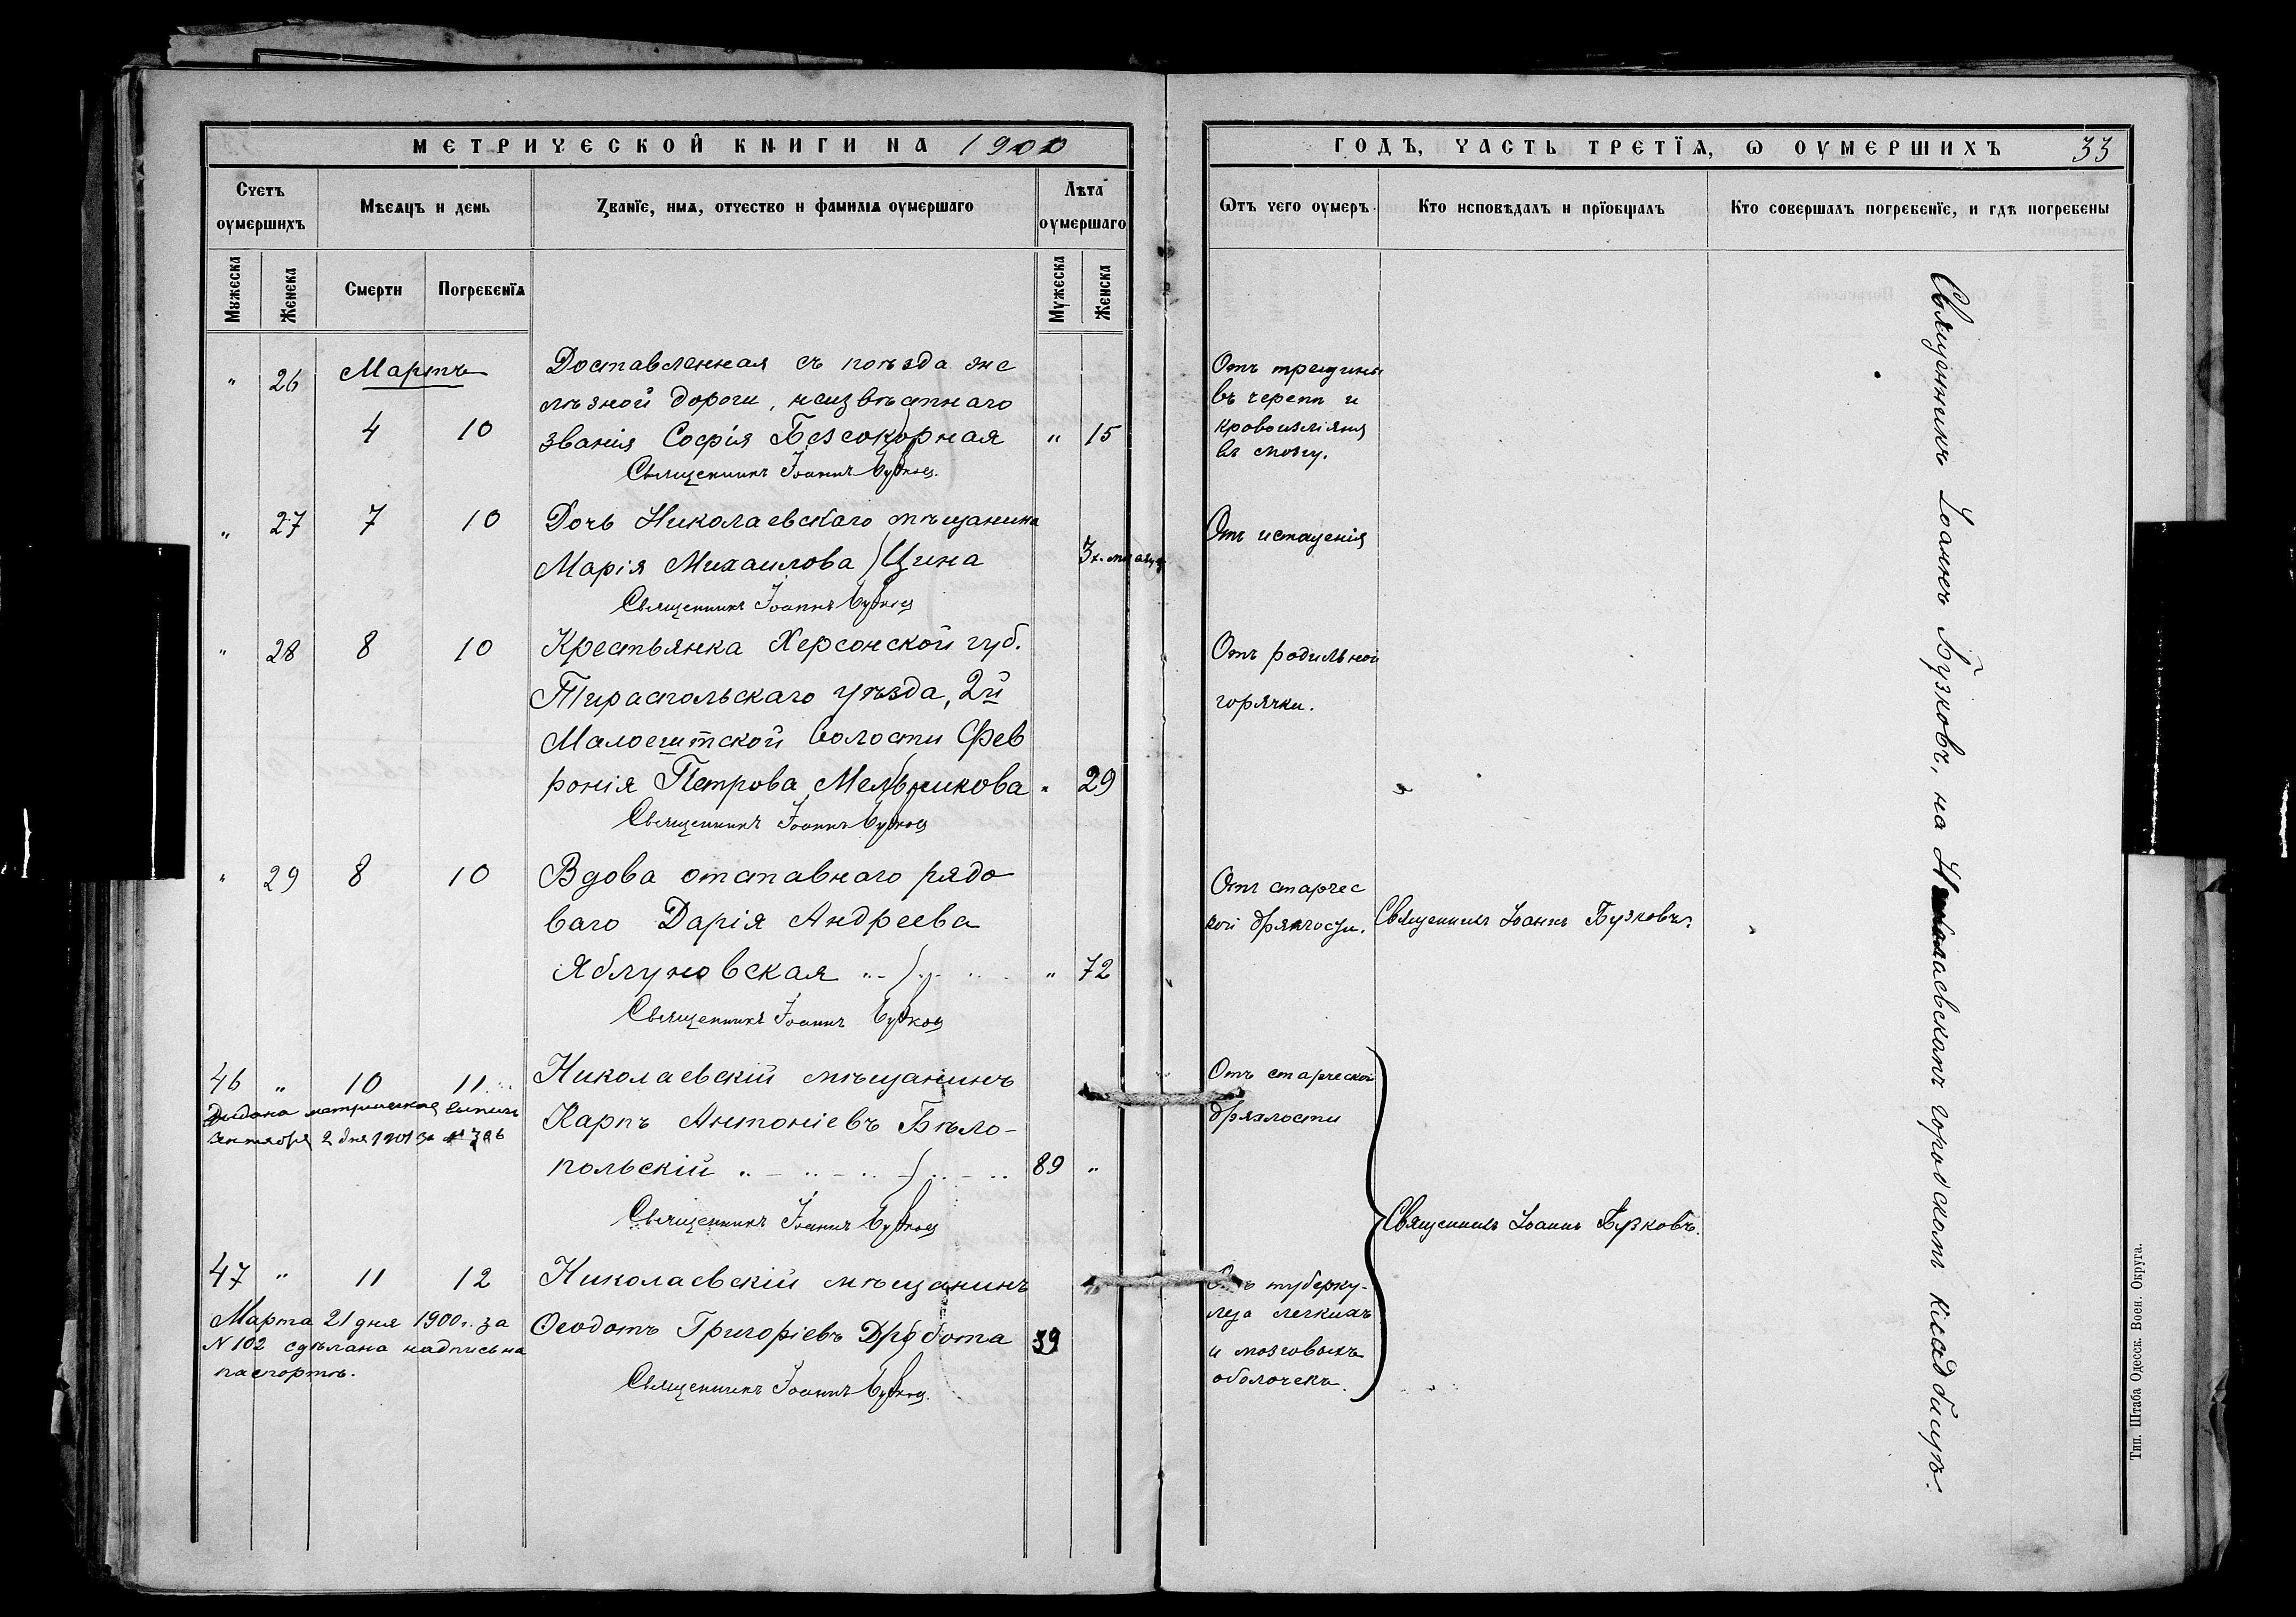 МЕТРИЧЕСКОЙ КНИГИ НА 1900
Счетъ оумершихъ
Мѣсяцъ и день
Званїе, имѧ, отчество и фамилїѧ оумершаго
Лѣта оумершаго
Мужеска
Женска
Смерти
Погребенїѧ
Мужеска
Женска
" 26 Мартъ
4 10
Доставленная съ поѣзда же
лѣзной дороги, неизвѣстнаго
званія Софія Безсокорная " 15
Священникъ Іоаннъ Бузковъ
" 27 7 10 Дочь Николаевскаго мѣщанина
Марія Михаилова Цина 3х. мѣсяц.
Священникъ Іоаннъ Бузковъ
" 28 8 10 Крестьянка Херсонской губ.
Тираспольскаго уѣзда, 2й
волости Фев
ронія Петрова Мельникова " 29
Священникъ Іоаннъ Бузковъ
" 29 8 10 Вдова отставнаго рядо
ваго Дарія Андреева
Яблуновская " 72
Священникъ Іоаннъ Бузковъ
46 " 10 11 Николаевскій мѣщанинъ
Выдана метрическая выпись
2 дня 1901 за №
Карпъ Антоніевъ Бѣло-
польскій 89 "
Священникъ Іоаннъ Бузковъ
47 " 11 12 Николаевскій мѣщанинъ
Марта 21 дня 1900 г. за
N 102 сдѣлана надпись на
паспортѣ.
Ѳеодотъ Григоріевъ Дробота 39
Священникъ Іоаннъ Бузковъ
ГОДЪ, ЧАСТЬ ТРЕТЇѦ, Ѡ ОУМЕРШИХЪ 33
Ѿтъ чего оумеръ
Кто исповѣдалъ и прїобщалъ
Кто совершалъ погребенїе, и гдѣ погребены
Отъ трещины
въ черепѣ и
кровоизліянія
въ мозгу.
Отъ истощенія
Отъ родильной
горячки.
Отъ старчес
кой дряхлости.
Священникъ Іоаннъ Бузковъ.
Отъ старческой
дряхлости
Священникъ Іоаннъ Бузковъ.
Отъ туберку-
леза легкихъ
и мозговыхъ
оболочекъ.
Священникъ Іоаннъ Бузковъ, на Николаевскомъ городскомъ кладбищѣ.
Тип. Штаба Одесск. Воен. Округа.